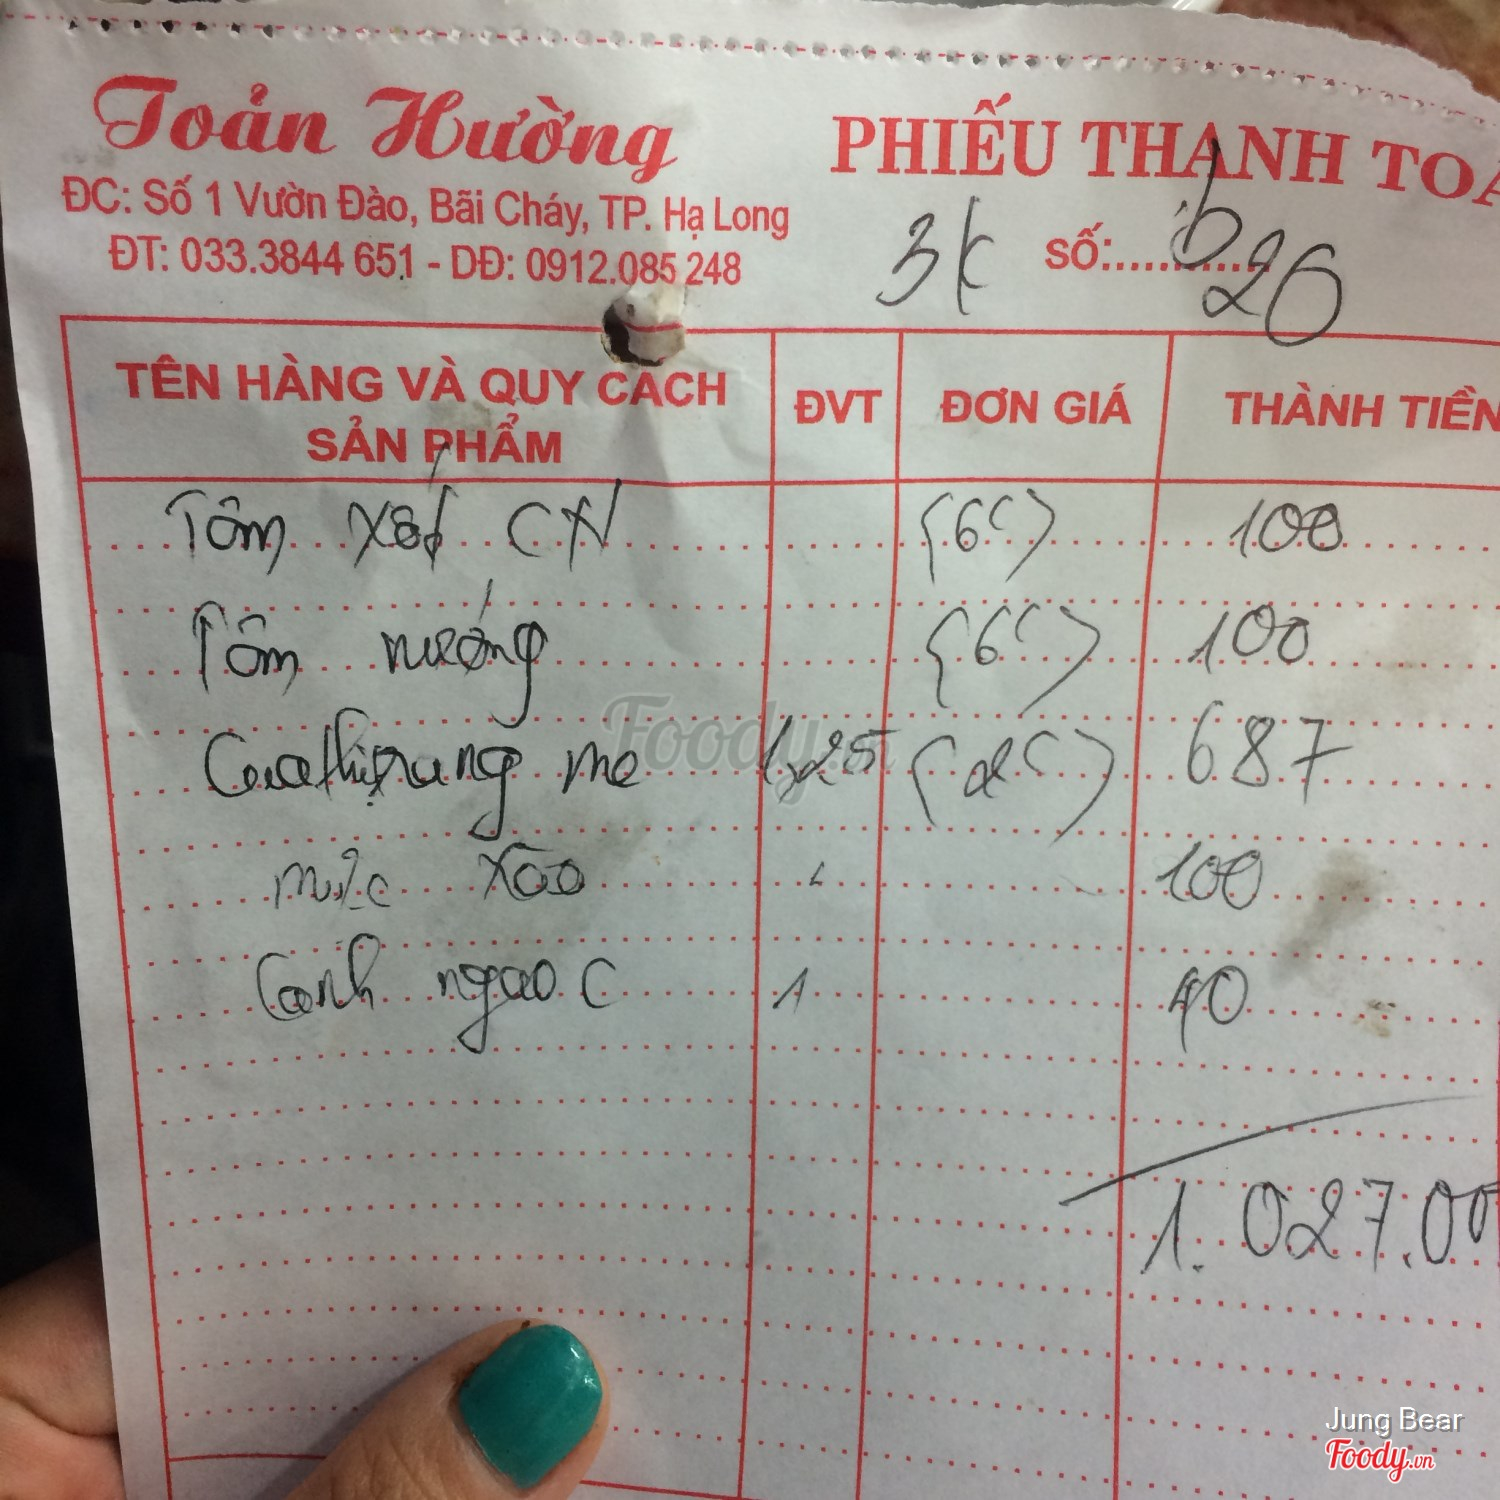 Toản Hường
ĐC: Số 1 Vườn Đào, Bãi Cháy, TP. Hạ Long
ĐT: 033.3844 651 - DĐ: 0912.085 248
PHIẾU THANH TOÁ
3k số:............ b26
TÊN HÀNG VÀ QUY CÁCH SẢN PHẨM ĐVT ĐƠN GIÁ THÀNH TIỀN
Tôm xốt CN (6C) 100
Tôm nướng (6C) 100
Cua thịt rung me 1,25 (2C) 687
mực xào 100
Canh ngao C 1 40
1.027.00
Foody.vn
Jung Bear
Foody.vn